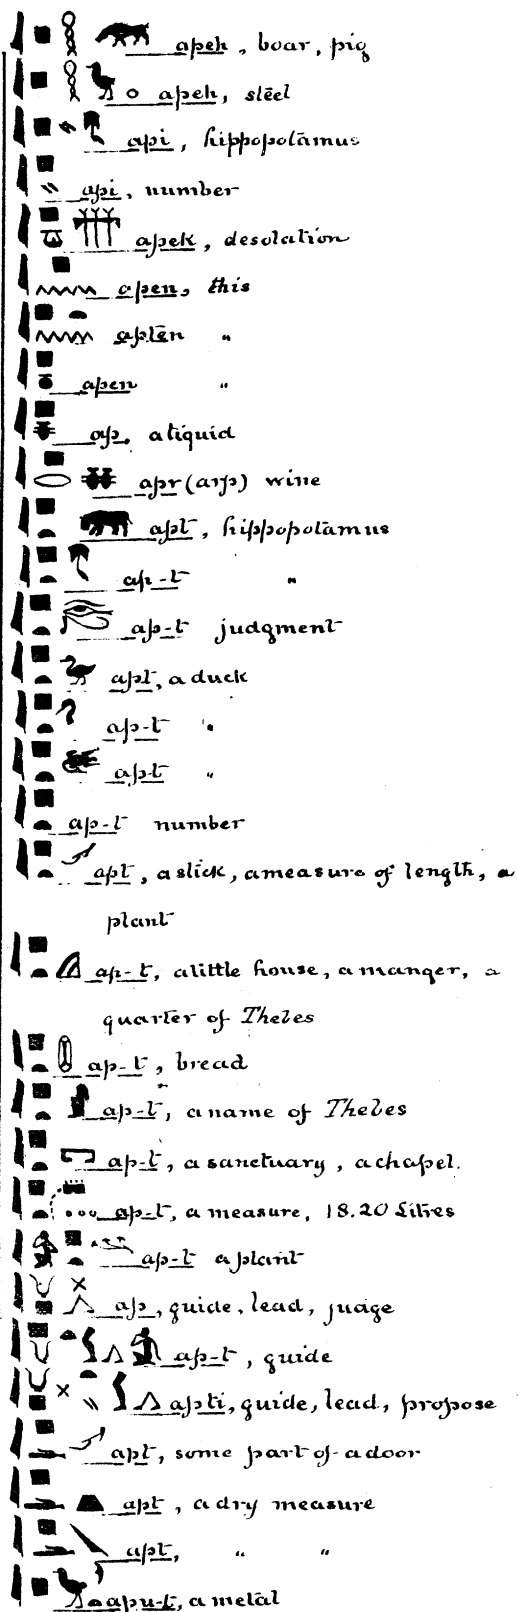 apeh, boar, pig
apeh, steel
api, hippopotamus
api, number
apek, desolation
apen, this
apten "
apen "
ap, a liquid
apr (arp) wine
apt, hippopotamus
ap-t "
ap-t judgment
apt, a duck
ap-t "
apt "
ap-t number
apt, a stick, a measure of length, a
plant
ap-t, a little house, a manger, a
quarter of Thebes
ap-t, bread
ap-t, a name of Thebes
ap-t, a sanctuary, a chapel.
ap-t, a measure, 18.20 Litres
ap-t a plant
ap, guide, lead, judge
ap-t, guide
apti, guide, lead, propose
apt, some part of a door
apt, a dry measure
apt, " "
apu-t, a metal